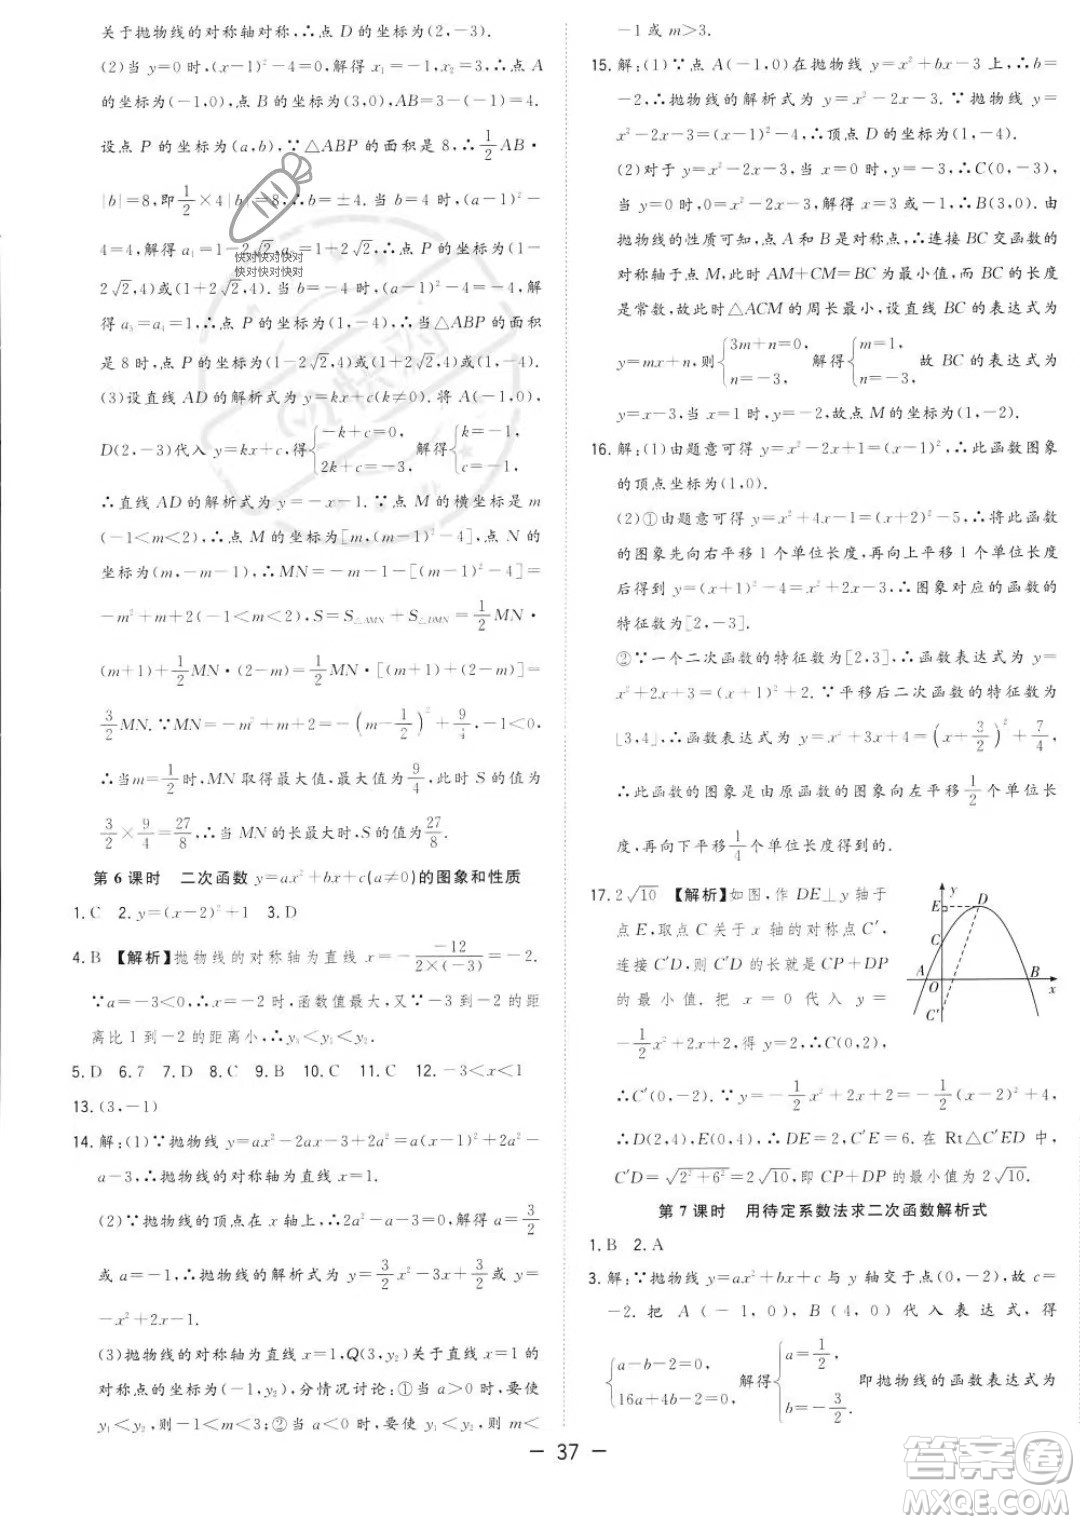 关于抛物线的对称轴对称,∴点 D 的坐标为(2,-3).
(2)当 y=0 时,(x-1)²-4=0,解得 x₁=-1,x₂=3,∴点 A
的坐标为(-1,0),点 B 的坐标为(3,0),AB=3-(-1)=4.
设点 P 的坐标为(a,b),∵△ABP 的面积是 8,∴1/2 AB·
|b|=8,即 1/2×4|b|=8,∴b=±4. 当 b=4 时,(a-1)²-
4=4,解得 a₁=1-2√2,a₂=1+2√2,∴点 P 的坐标为(1-
2√2,4)或(1+2√2,4);当 b=-4 时,(a-1)²-4=-4,解
得 a₃=a₄=1,∴点 P 的坐标为(1,-4),∴当△ABP 的面积
是 8 时,点 P 的坐标为(1-2√2,4)或(1+2√2,4)或(1,-4).
(3)设直线 AD 的解析式为 y=kx+c(k≠0).将 A(-1,0),
D(2,-3)代入 y=kx+c,得{-k+c=0, 2k+c=-3, 解得{k=-1, c=-1,
∴直线 AD 的解析式为 y=-x-1. ∵点 M 的横坐标是 m
(-1<m<2),∴点 M 的坐标为[m,(m-1)²-4],点 N 的
坐标为(m,-m-1),∴MN=-m-1-[(m-1)²-4]=
-m²+m+2(-1<m<2),S=S△AMN+S△DMN=1/2 MN·
(m+1)+1/2 MN·(2-m)=1/2 MN·[(m+1)+(2-m)]=
3/2 MN.∵MN=-m²+m+2=-(m-1/2)²+9/4,-1<m<2,
∴当 m=1/2 时,MN 取得最大值,最大值为 9/4,此时 S 的值为
3/2×9/4=27/8,∴当 MN 的长最大时,S 的值为 27/8.
第 6 课时 二次函数 y=ax²+bx+c(a≠0)的图象和性质
1. C 2. y=(x-2)²+1 3. D
4. B 【解析】抛物线的对称轴为直线 x=- -12/(2×(-3)) =-2.
∵a=-3<0,∴x=-2 时,函数值最大,又∵-3 到-2 的距
离比 1 到-2 的距离小,∴y₃<y₁<y₂.
5. D 6. 7 7. D 8. C 9. B 10. C 11. C 12. -3<x<1
13. (3,-1)
14. 解:(1)∵抛物线 y=ax²-2ax-3+2a²=a(x-1)²+2a²-
a-3,∴抛物线的对称轴为直线 x=1.
(2)∵抛物线的顶点在 x 轴上,∴2a²-a-3=0,解得 a=3/2
或 a=-1,∴抛物线的解析式为 y=3/2 x²-3x+3/2 或 y=
-x²+2x-1.
(3)抛物线的对称轴为直线 x=1,Q(3,y₂)关于直线 x=1 的
对称点的坐标为(-1,y₂),分情况讨论:①当 a>0 时,要使
y₁<y₂,则-1<m<3;②当 a<0 时,要使 y₁<y₂,则 m<
-1 或 m>3.
15. 解:(1)∵点 A(-1,0)在抛物线 y=x²+bx-3 上,∴b=
-2,∴抛物线的解析式为 y=x²-2x-3. ∵抛物线 y=
x²-2x-3=(x-1)²-4,∴顶点 D 的坐标为(1,-4).
(2)对于 y=x²-2x-3,当 x=0 时,y=-3,∴C(0,-3).
当 y=0 时,0=x²-2x-3,解得 x=3 或-1,∴B(3,0).由
抛物线的性质可知,点 A 和 B 是对称点,∴连接 BC 交函数的
对称轴于点 M,此时 AM+CM=BC 为最小值,而 BC 的长度
是常数,故此时△ACM 的周长最小,设直线 BC 的表达式为
y=mx+n,则{3m+n=0, n=-3, 解得{m=1, n=-3, 故 BC 的表达式为
y=x-3,当 x=1 时,y=-2,故点 M 的坐标为(1,-2).
16. 解:(1)由题意可得 y=x²-2x+1=(x-1)²,∴此函数图象
的顶点坐标为(1,0).
(2)①由题意可得 y=x²+4x-1=(x+2)²-5,∴将此函数
的图象先向右平移 1 个单位长度,再向上平移 1 个单位长度
后得到 y=(x+1)²-4=x²+2x-3,∴图象对应的函数的
特征数为[2,-3].
②∵一个二次函数的特征数为[2,3],∴函数表达式为 y=
x²+2x+3=(x+1)²+2.∵平移后二次函数的特征数为
[3,4],∴函数表达式为 y=x²+3x+4=(x+3/2)²+7/4,
∴此函数的图象是由原函数的图象向左平移 1/2 个单位长
度,再向下平移 1/4 个单位长度得到的.
17. 2√10 【解析】如图,作 DE⊥y 轴于
点 E,取点 C 关于 x 轴的对称点 C′,
连接 C′D,C′D 的长就是 CP+DP
的最小值. 把 x=0 代入 y=
-1/2 x²+2x+2,得 y=2,∴C(0,2),
∴C′(0,-2).∵y=-1/2 x²+2x+2=-1/2(x-2)²+4,
∴D(2,4),E(0,4),∴DE=2,C′E=6. 在 Rt△C′ED 中,
C′D=√(2²+6²)=2√10,即 CP+DP 的最小值为 2√10.
y
E
D
C
A
O
B
x
C′
第 7 课时 用待定系数法求二次函数解析式
1. B 2. A
3. 解:∵抛物线 y=ax²+bx+c 与 y 轴交于点(0,-2),故 c=
-2. 把 A(-1,0),B(4,0)代入表达式,得
{a-b-2=0, 16a+4b-2=0, 解得{a=1/2, b=-3/2. 即抛物线的函数表达式为
- 37 -
快对快对快对
快对快对快对
答案圈
MXQE.COM